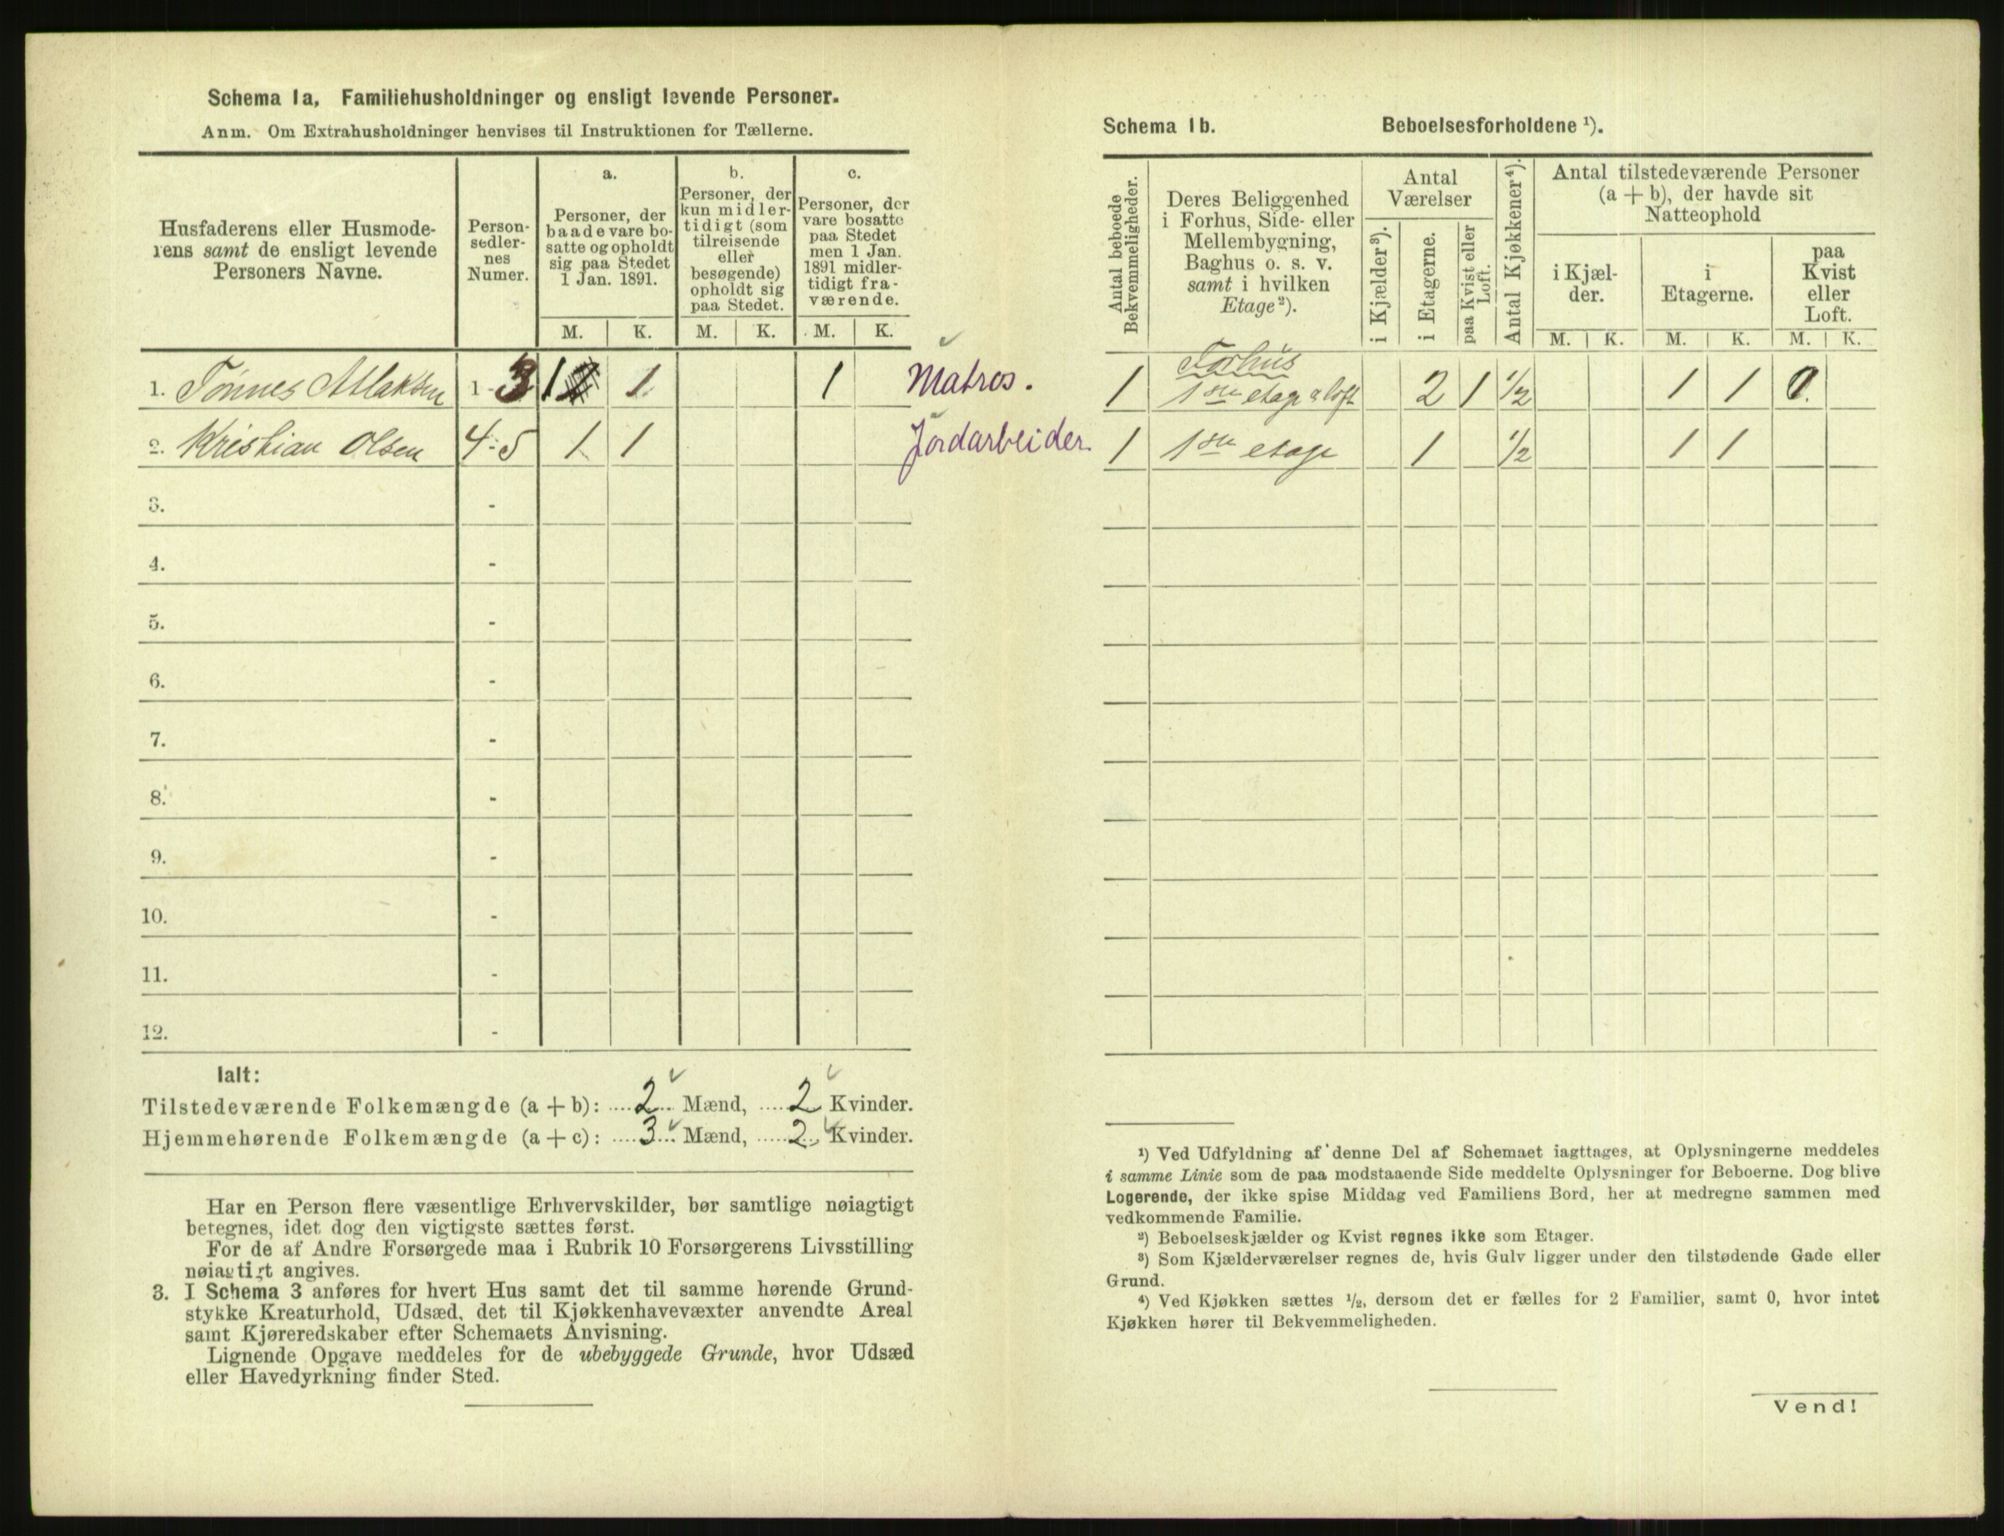 Schema 1a. Familiehusholdninger og ensligt levende Personer.
Anm. Om Extrahusholdninger henvises til Instruktionen for Tællerne.
Husfaderens eller Husmode-
rens samt de ensligt levende
Personers Navne.
Person-
sedler-
nes
Numer.
a.
Personer, der
baade vare bo-
satte og opholdt
sig paa Stedet
1 Jan. 1891.
b.
Personer, der
kun midler-
tidigt (som
tilreisende
eller
besøgende)
opholdt sig
paa Stedet.
c.
Personer, der
vare bosatte
paa Stedet
men 1 Jan.
1891 midler-
tidigt fra-
værende.
M. K. M. K. M. K.
1. Tønnes Atlaksen 1-3 1 1 1 Matros.
2. Kristian Olsen 4-5 1 1 Jordarbeider.
3. -
4. -
5. -
6. -
7. -
8. -
9. -
10. -
11. -
12. -
Ialt:
Tilstedeværende Folkemængde (a + b): 2 Mænd, 2 Kvinder.
Hjemmehørende Folkemængde (a + c): 3 Mænd, 2 Kvinder.
Har en Person flere væsentlige Erhvervskilder, bør samtlige nøiagtigt
betegnes, idet dog den vigtigste sættes først.
For de af Andre Forsørgede maa i Rubrik 10 Forsørgerens Livsstilling
nøiagtigt angives.
3. I Schema 3 anføres for hvert Hus samt det til samme hørende Grund-
stykke Kreaturhold, Udsæd, det til Kjøkkenhavevæxter anvendte Areal
samt Kjøreredskaber efter Schemaets Anvisning.
Lignende Opgave meddeles for de ubebyggede Grunde, hvor Udsæd
eller Havedyrkning finder Sted.
Schema 1b. Beboelsesforholdene ¹).
Antal beboede
Bekvemmeligheder.
Deres Beliggenhed
i Forhus, Side- eller
Mellembygning,
Baghus o. s. v.
samt i hvilken
Etage²).
Antal
Værelser
i Kjælder³).
i Etagerne.
paa Kvist eller
Loft.
Antal Kjøkkener⁴).
Antal tilstedeværende Personer
(a + b), der havde sit
Natteophold
i Kjæl-
der.
i
Etagerne.
paa
Kvist
eller
Loft.
M. K. M. K. M. K.
Forhus
1 1ste etage o loft 2 1 ½ 1 1 0
1 1ste etage 1 ½ 1 1
¹) Ved Udfyldning af denne Del af Schemaet iagttages, at Oplysningerne meddeles
i samme Linie som de paa modstaaende Side meddelte Oplysninger for Beboerne. Dog blive
Logerende, der ikke spise Middag ved Familiens Bord, her at medregne sammen med
vedkommende Familie.
²) Beboelseskjælder og Kvist regnes ikke som Etager.
³) Som Kjælderværelser regnes de, hvis Gulv ligger under den tilstødende Gade eller
Grund.
⁴) Ved Kjøkken sættes ½, dersom det er fælles for 2 Familier, samt 0, hvor intet
Kjøkken hører til Bekvemmeligheden.
Vend!